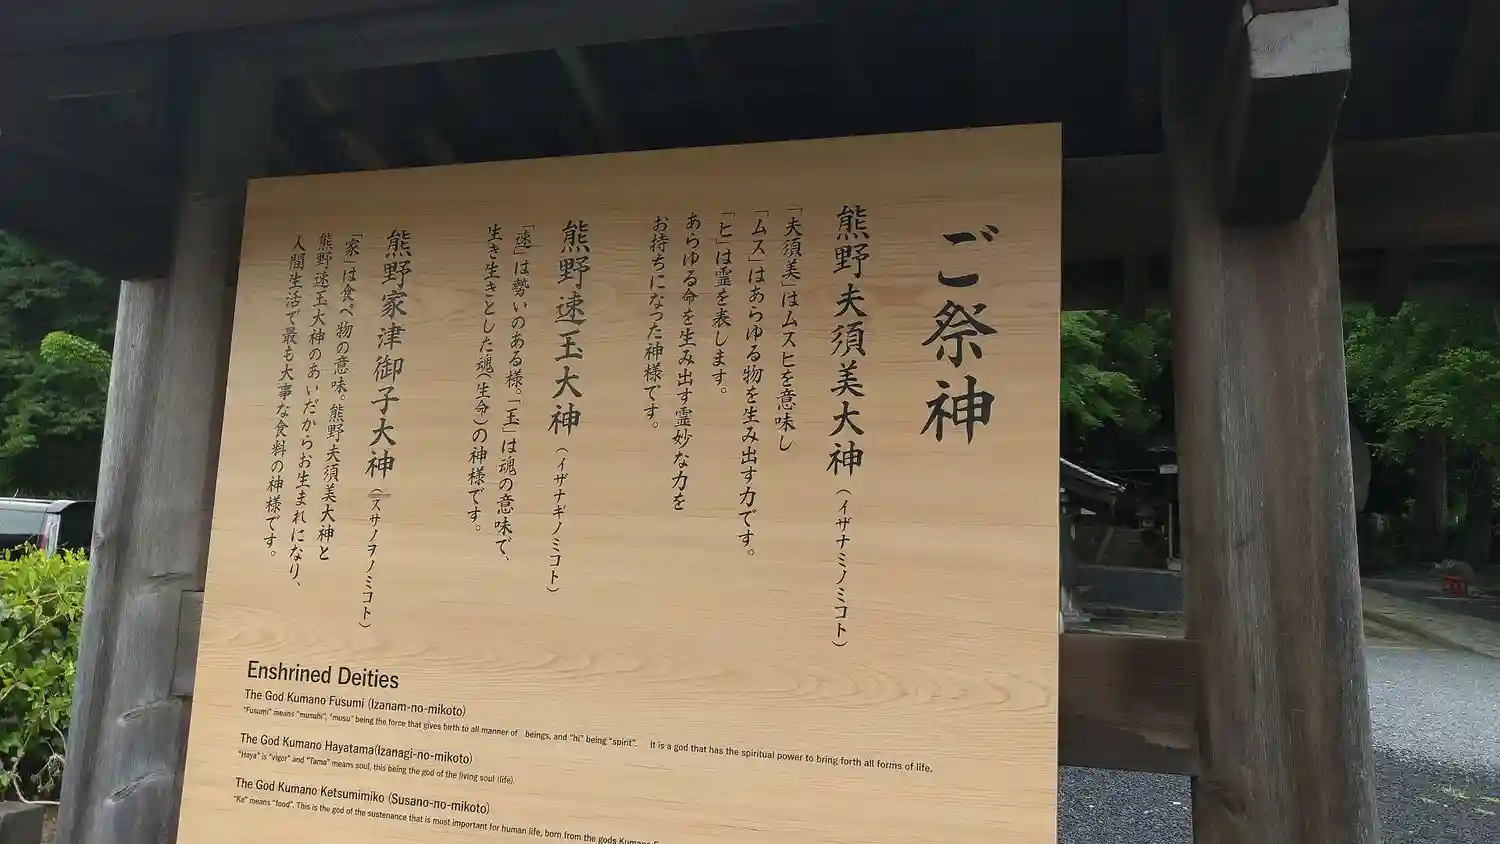 ご祭神
熊野夫須美大神(イザナミノミコト)
「夫須美」はムスヒを意味し
「ムス」はあらゆる物を生み出す力です。
「ヒ」は霊を表します。
あらゆる命を生み出す霊妙な力を
お持ちになった神様です。
熊野速玉大神(イザナギノミコト)
「速」は勢いのある様。「玉」は魂の意味で、
生き生きとした魂(生命)の神様です。
熊野家津御子大神(スサノヲノミコト)
「家」は食べ物の意味。熊野夫須美大神と
熊野速玉大神のあいだからお生まれになり、
人間生活で最も大事な食料の神様です。
Enshrined Deities
The God Kumano Fusumi (Izanam-no-mikoto)
"Fusumi" means "musuhi", "musu" being the force that gives birth to all manner of beings, and "hi" being "spirit". It is a god that has the spiritual power to bring forth all forms of life.
The God Kumano Hayatama(Izanagi-no-mikoto)
"Haya" is "vigor" and "Tama" means soul, this being the god of the living soul (life).
The God Kumano Ketsumimiko (Susano-no-mikoto)
"Ke" means "food". This is the god of the sustenance that is most important for human life, born from the gods Kumano